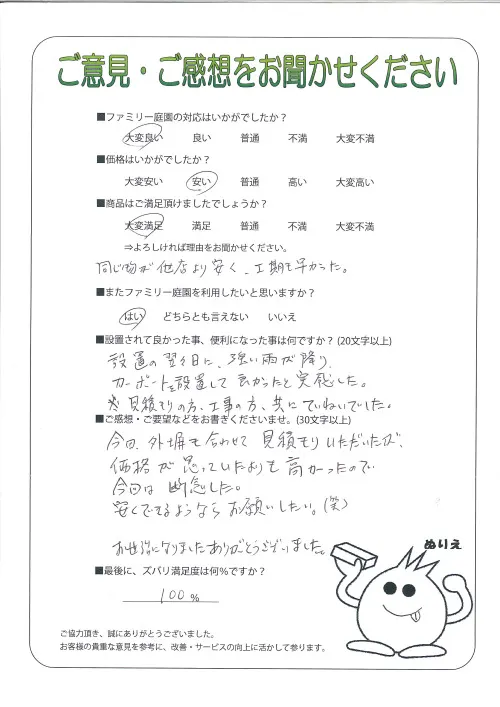 ご意見・ご感想をお聞かせください
■ファミリー庭園の対応はいかがでしたか？
大変良い 良い 普通 不満 大変不満
■価格はいかがでしたか？
大変安い 安い 普通 高い 大変高い
■商品はご満足頂けましたでしょうか？
大変満足 満足 普通 不満 大変不満
⇒よろしければ理由をお聞かせください。
同じ物が他店より安く、工期も早かった。
■またファミリー庭園を利用したいと思いますか？
はい どちらとも言えない いいえ
■設置されて良かった事、便利になった事は何ですか？(20文字以上)
設置の翌日に、強い雨が降り、
カーポートを設置して良かったと実感した。
※見積もりの方、工事の方、共にていねいでした。
■ご感想・ご要望などをお書きくださいませ。(30文字以上)
今回、外塀も合わせて見積もりいただいたが、
価格が思っていたよりも高かったので
今回は断念した。
安くできるようならお願いしたい。(笑)
お世話になりましたありがとうございました。
■最後に、ズバリ満足度は何%ですか？
100%
ぬりえ
ご協力頂き、誠にありがとうございました。
お客様の貴重な意見を参考に、改善・サービスの向上に活かして参ります。